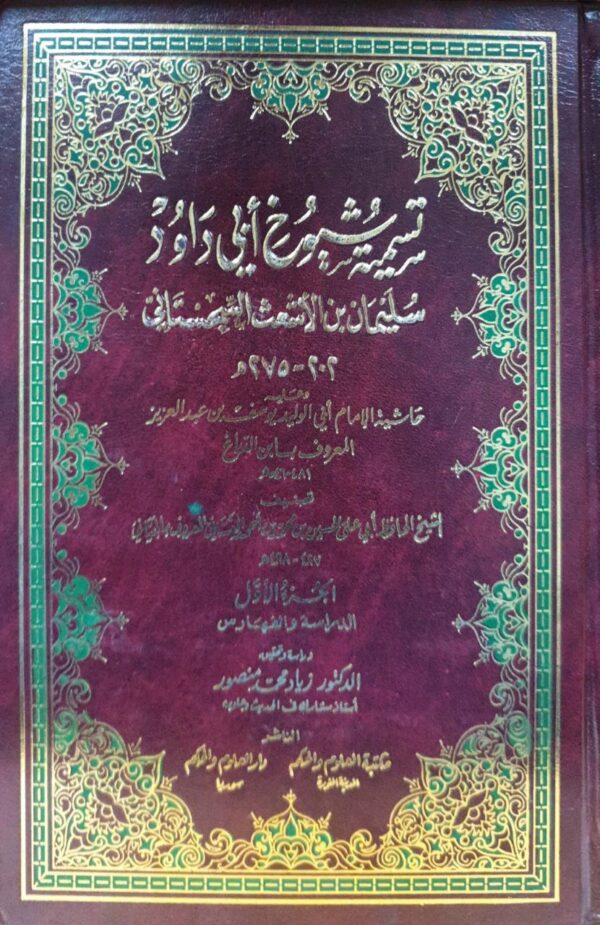 تسمية شيوخ أبي داود
سليمان بن الأشعث السجستاني
٢٠٢ - ٢٧٥هـ
وعليه
حاشية الإمام أبي الوليد يوسف بن عبد العزيز
المعروف بابن الدباغ
٤٨١ - هـ
تصنيف
الشيخ الحافظ أبي علي الحسين بن محمد بن أحمد الغساني المعروف بالجياني
٤٢٧ - ٤٩٨هـ
الجزء الأول
الدراسة والفهارس
دراسة وتحقيق
الدكتور زياد محمد منصور
أستاذ مشارك في الحديث وعلومه
الناشر
مكتبة العلوم والحكم دار العلوم والحكم
المدينة المنورة سوريا